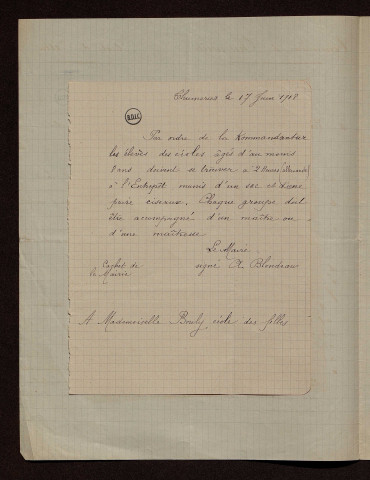 le 17 Juin 1918
BDIC
Par ordre de la Kommandantur
les élèves des écoles âgés d'au moins
8 ans doivent se trouver à 2 heures
à l'Entrepôt munis d'un sac et d'une
paire ciseaux. Chaque groupe doit
être accompagné d'un maître ou
d'une maîtresse
Le Maire
Cachet de signé A Blondeau
la Mairie
A Mademoiselle Bouly école des filles